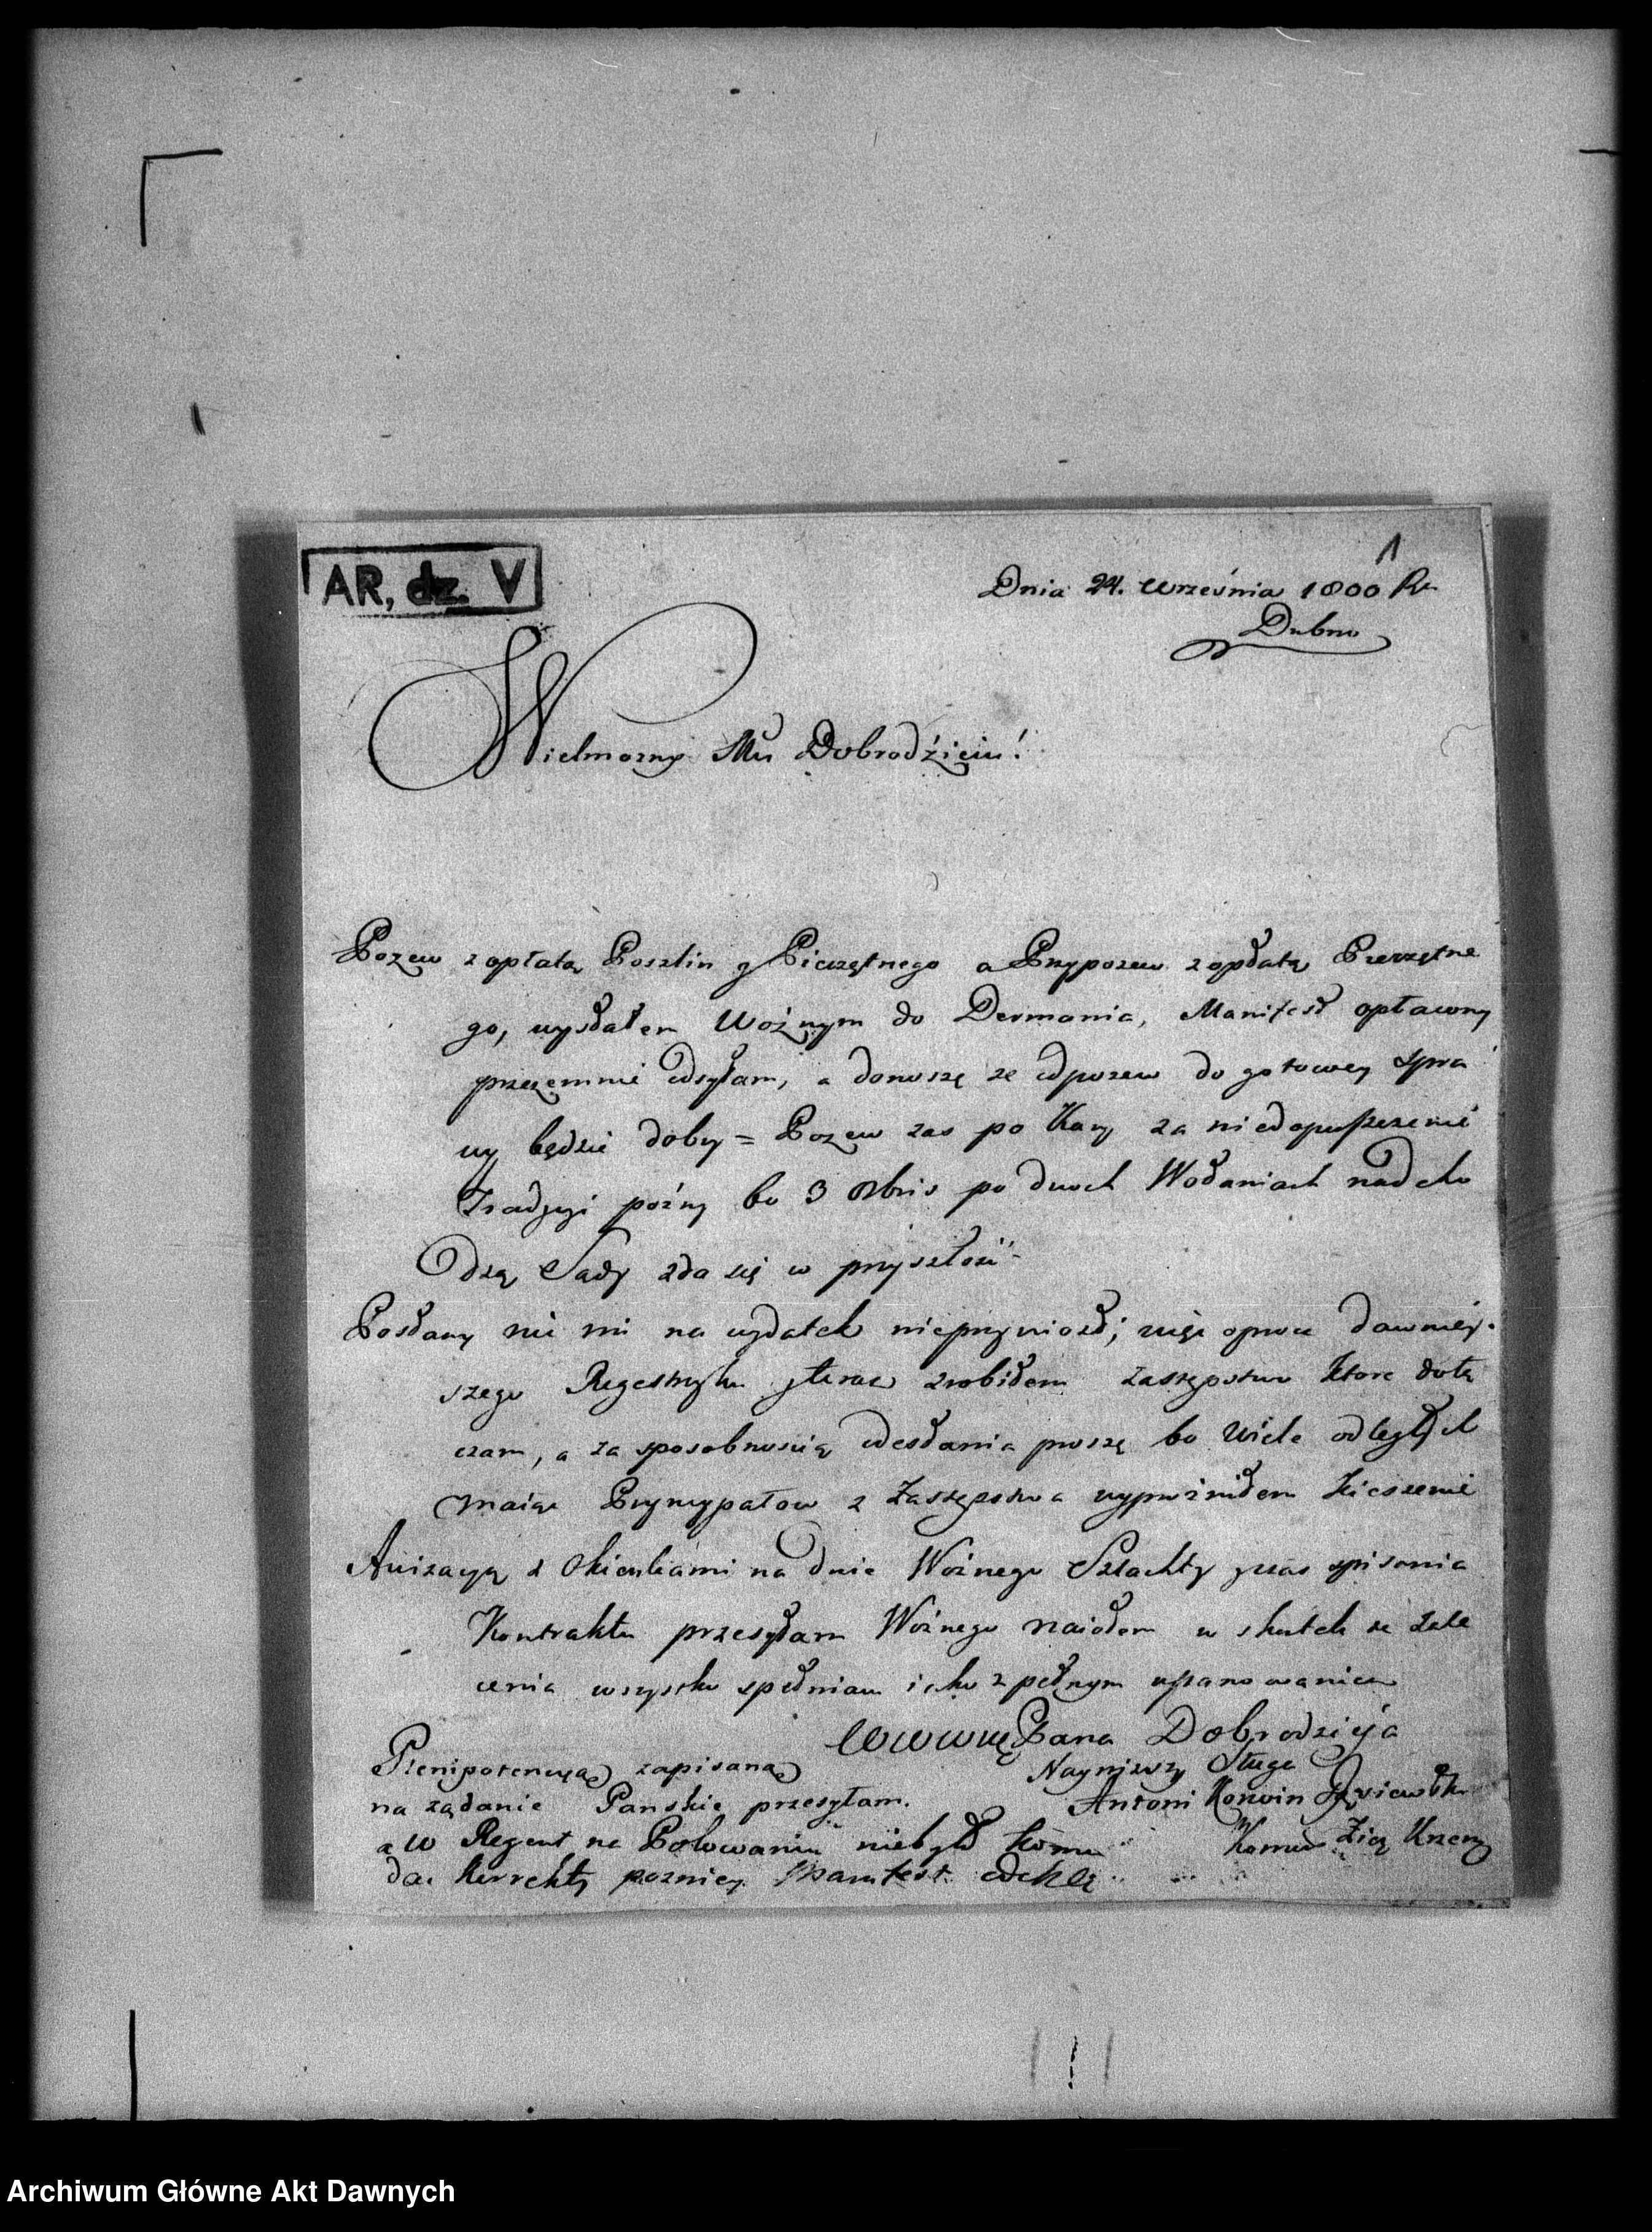 AR, dz. V
1
Dnia 24. Września 1800 Ru
Dubno
Wielmożny Mci Dobrodźieiu!
Pozew z opłatą Poszlin y Pieczętnego a Przypozew z opłatą Pieczętne
go, wysłałem Woźnym do Dermania, Manifest opłacony
przezemnie odsyłam, a donoszę że odpozew do gotowey spra
wy będzie dobry = Pozew zas po Kary za niedopuszczenie
Tradycyi poźny bo 3 8bris po dwoch Wołaniach nadcho
dzą Sądy zda się w przyszłość
Posłany nic mi na wydatek nieprzyniosł; więc oprocz dawniey-
szego Regestrzyku y teraz zrobiłem Zastępstwo Ktore dołą
czam, a za sposobnością odesłania proszę bo wiele odległych
maiąc Pryncypałow z Zastępstwa wyprożniłem Kieszenie
Awizacyą z Okienkami na dnie Woźnego Szlachty y czas spisania
Kontraktu przesyłam Woźnego naiołem w skutek ze zale
cenia wszystko spełniam iako z pełnym uszanowaniem
WWWMę Pana Dobrodzieja
Nayniższy Sługa
Antoni Korwin
Plenipotencyą zapisaną
na żądanie Panskie przesyłam.
a W Regent na Polowaniu niebył komu
dac Korrekty pozniey Manifest